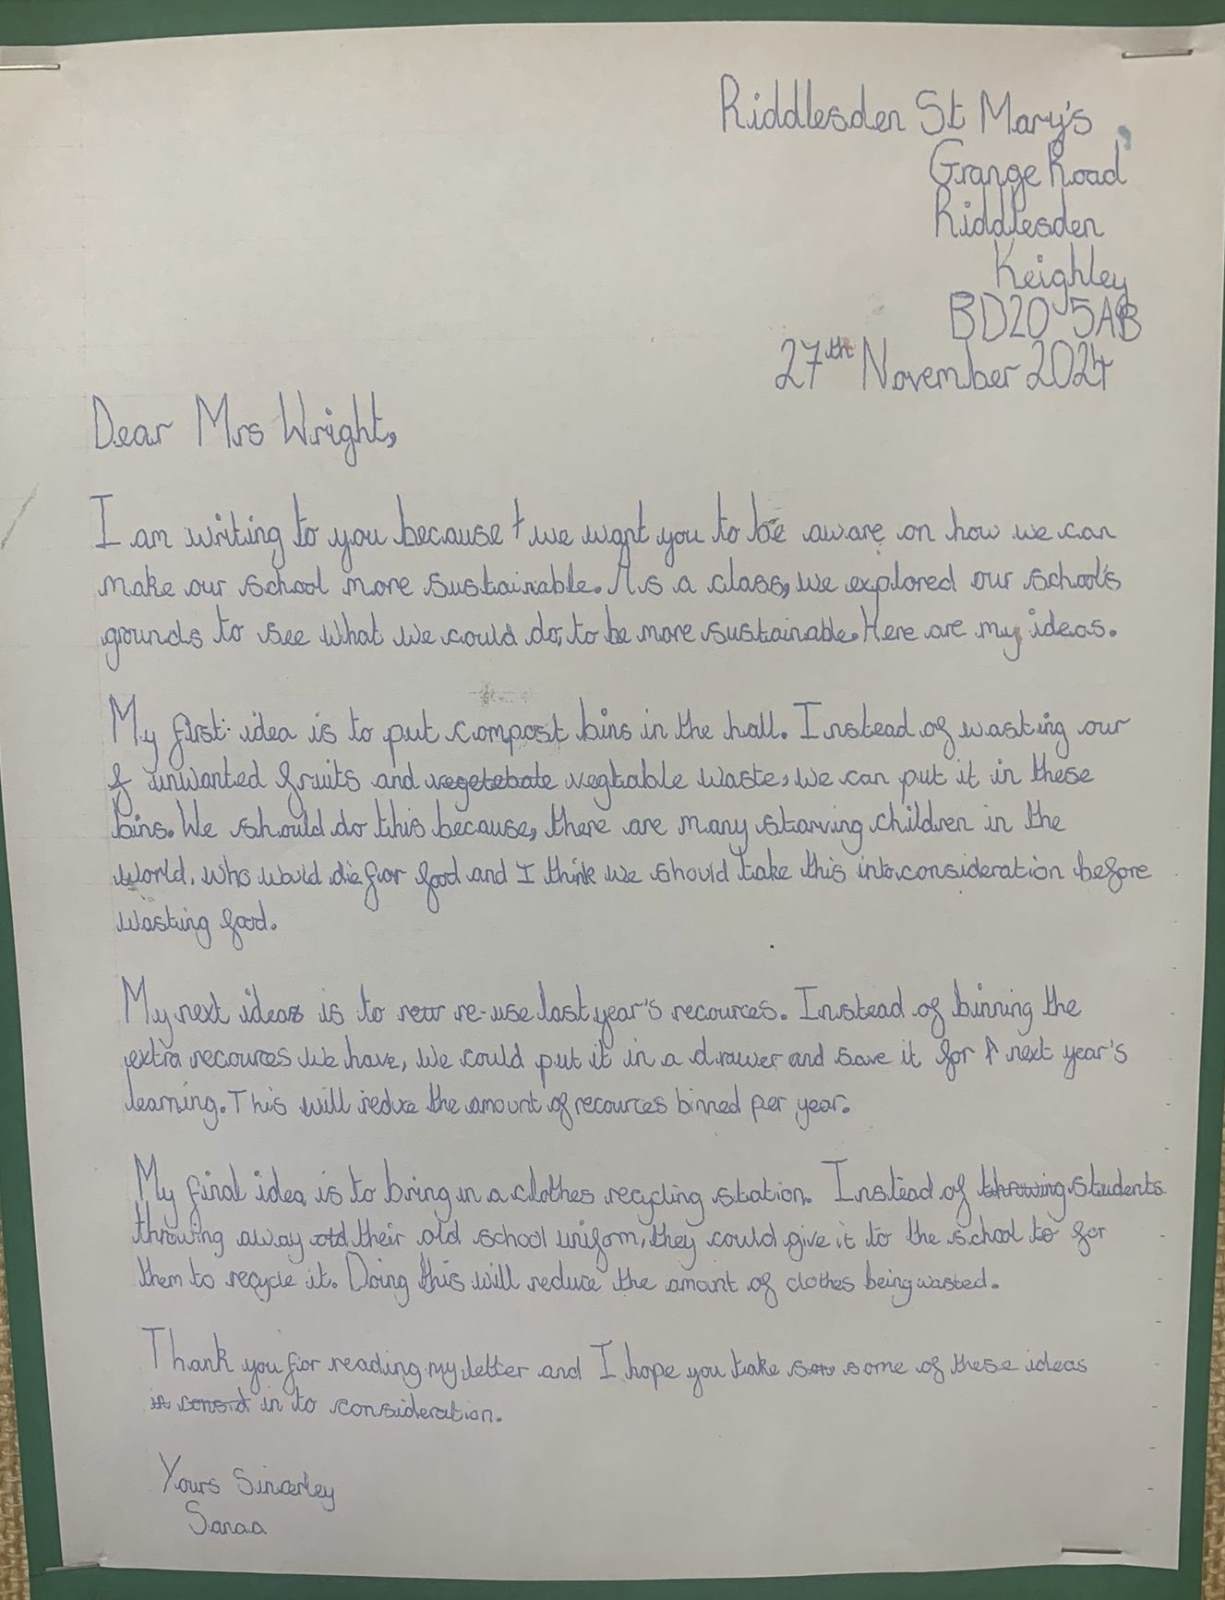 Riddlesden St Mary's
Grange Road
Riddlesden
Keighley
BD20 5AB
27th November 2024
Dear Mrs Wright,
I am writing to you because we want you to be aware on how we can
make our school more sustainable. As a class, we explored our school's
grounds to see what we could do, to be more sustainable. Here are my ideas.
My first idea is to put compost bins in the hall. Instead of wasting our
unwanted fruits and vegetebate vegtable waste, we can put it in these
bins. We should do this because, there are many starving children in the
world, who would die for food and I think we should take this into consideration before
wasting food.
My next idea is to re-use last year's recources. Instead of binning the
extra recources we have, we could put it in a drawer and save it for next year's
learning. This will reduce the amount of recources binned per year.
My final idea is to bring in a clothes recycling station. Instead of throwing students
throwing away old their old school uniform, they could give it to the school to for
them to recycle it. Doing this will reduce the amount of clothes being wasted.
Thank you for reading my letter and I hope you take som some of these ideas
in to consideration.
Yours Sincerley
Sanaa